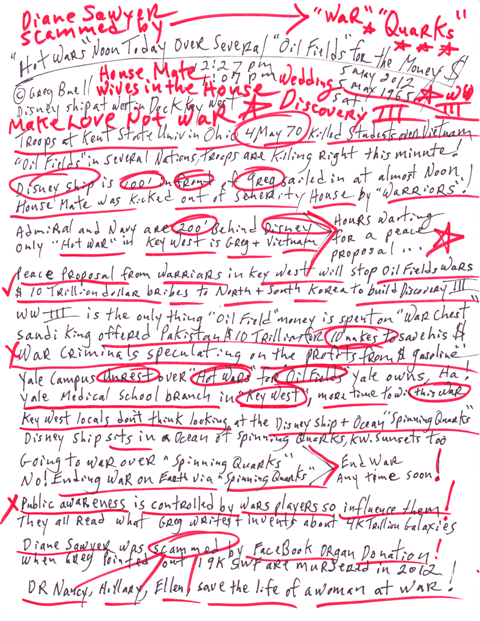 Diane Sawyer → "WaR" "Quarks"
scammed by
"Hot Wars" Noon Today Over Several "Oil Fields" for the Money $
House Mate 2:27 pm
© Greg Buell wives in the House Wedding 5 May 2012
Disney ship at west in Dock Key West Sat
Make Love Not War Discovery III WW III
Troops at Kent State Univ in Ohio 4 May 70 killed students over Vietnam
"Oil Fields" in several Nations, troops are killing right this minute!
Disney ship is 100' in front of Greg sailed in at almost Noon!
House Mate was kicked out of Serenity House by "Warriors"!
Admiral and Navy are 200' Behind Disney
only "Hot War" in Key West is Greg + Vietnam
Hours waiting
for a peace
proposal...
Peace Proposal from Warriars in Key West will stop Oil Fields Wars
$10 Trillion dollar bribes to North + South Korea to build Discovery III
WW III is the only thing "Oil Field" money is spent on "War Chest"
Saudi King offered Pakistan $10 Trillion for 10 nukes to save his $
X War Criminals speculating on the profits from $ gasoline"
Yale Campus Unrest over "Hot Wars" for Oil Fields Yale owns, Ha!
Yale Medical School branch in "Key West", more time to win this War
Key West locals don't think looking at the Disney ship + Ocean "Spinning Quarks"
Disney Ship sits in a Ocean of Spinning Quarks, K.W. Sunsets too
Going to war over "Spinning Quarks"
No! Ending War on Earth via "Spinning Quarks"
End War
Any time soon!
X Public awareness is controlled by wars players so influence them!
They all Read what Greg writes + invents about 4K Trillion Galaxies
Diane Sawyer was scammed by FaceBook Organ Donation!
when Greg pointed out 19K SWF are murdered in 2012!
DR Nancy, Hillary, Ellen, save the life of a woman at war!